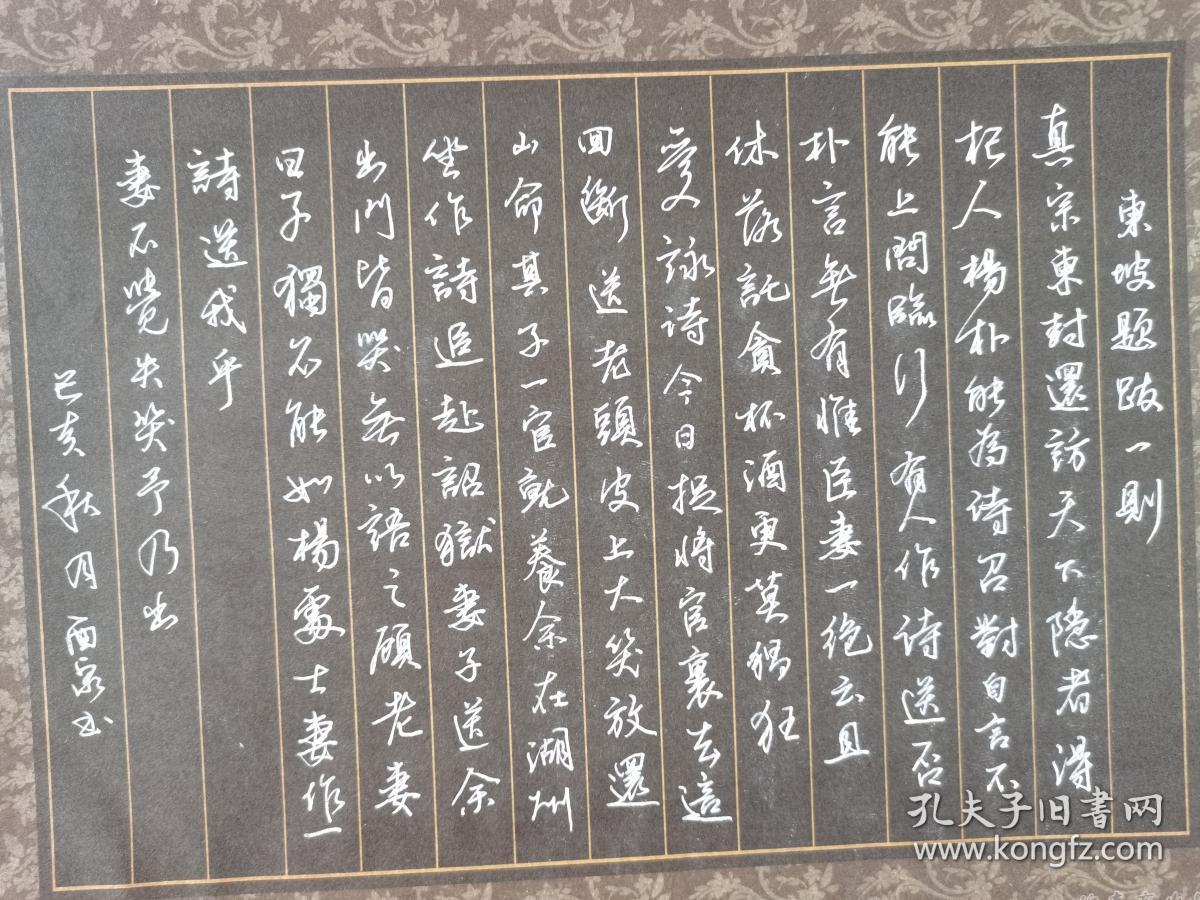 東坡题跋一則
真宗東封還訪天下隱者得
杞人楊朴能為诗召對自言不
能上問臨行有人作诗送否
朴言無有惟臣妻一绝云且
休落託貪杯酒更莫猖狂
愛詠诗今日捉將官裏去這
回斷送老頭皮上大笑放還
山命其子一官就養余在湖州
坐作詩追赴詔獄妻子送余
出門皆哭無以語之顧老妻
曰子獨不能如楊處士妻作一
詩送我乎
妻不覺失笑予乃出
己亥秋月西泉书
孔夫子旧書网
www.kongfz.com